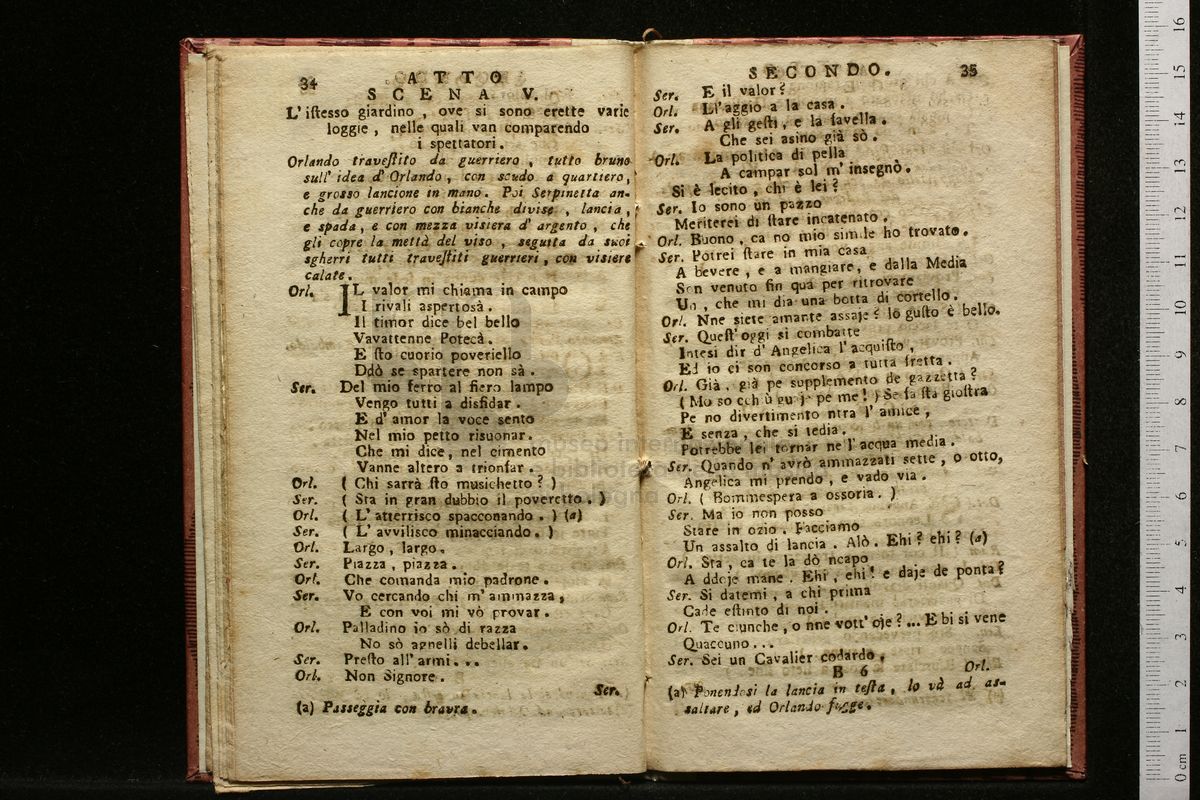 34
ATTO
SCENA V.
L'istesso giardino, ove si sono erette varie
loggie, nelle quali van comparendo
i spettatori.
Orlando travestito da guerriero, tutto bruno
sull'idea d'Orlando, con scudo a quartiero,
e grosso lancione in mano. Poi Serpinetta an-
che da guerriero con bianche divise, lancia,
e spada, e con mezza visiera d'argento, che
gli copre la mettà del viso, seguita da suoi
sgherri tutti travestiti guerrieri, con visiere
calate.
Orl. IL valor mi chiama in campo
I rivali aspertosà.
Il timor dice bel bello
Vavattenne Potecà.
E sto cuorio poveriello
Ddò se spartere non sà.
Ser. Del mio ferro al fiero lampo
Vengo tutti a disfidar.
E d'amor la voce sento
Nel mio petto risuonar.
Che mi dice, nel cimento
Vanne altero a trionfar.
Orl. (Chi sarrà sto musichetto?)
Ser. (Sta in gran dubbio il poveretto.)
Orl. (L'atterrisco spacconando.) (a)
Ser. (L'avvilisco minacciando.)
Orl. Largo, largo.
Ser. Piazza, piazza.
Orl. Che comanda mio padrone.
Ser. Vo cercando chi m'ammazza,
E con voi mi vò provar.
Orl. Palladino io sò di razza
No sò agnelli debellar.
Ser. Presto all'armi...
Orl. Non Signore.
Ser.
(a) Passeggia con bravra.
SECONDO.
35
Ser. E il valor?
Orl. Ll'aggio a la casa.
Ser. A gli gesti, e la favella.
Che sei asino già sò.
Orl. La politica di pella
A campar sol m'insegnò.
Si è lecito, chi è lei?
Ser. Io sono un pazzo
Meriterei di stare incatenato.
Orl. Buono, ca no mio simile ho trovato.
Ser. Potrei stare in mia casa
A bevere, e a mangiare, e dalla Media
Son venuto fin quà per ritrovare
Un, che mi dia una botta di cortello.
Orl. Nne siete amante assaje? lo gusto è bello.
Ser. Quest'oggi si combatte
Intesi dir d'Angelica l'acquisto,
Ed io ci son concorso a tutta fretta.
Orl. Già, già pe supplemento de gazzetta?
(Mo so cchiù guaje pe me!) Se fa sta giostra
Pe no divertimento ntra l'amice,
E senza, che si tedia.
Potrebbe lei tornar ne l'acqua media.
Ser. Quando n'avrò ammazzati sette, o otto,
Angelica mi prendo, e vado via.
Orl. (Bommespera a ossoria.)
Ser. Ma io non posso
Stare in ozio. Facciamo
Un assalto di lancia. Alò. Ehi? ehi? (a)
Orl. Sta, ca te la dò ncapo
A ddoje mane. Ehi, ehi! e daje de ponta?
Ser. Si datemi, a chi prima
Cade estinto di noi.
Orl. Te ciunche, o nne vott'oje?... E bi si vene
Quaccuno...
Ser. Sei un Cavalier codardo.
B 6
Orl.
(a) Ponendosi la lancia in testa, lo và ad as-
saltare, ed Orlando fugge.
16
15
14
13
12
11
10
9
8
7
6
5
4
3
2
1
0 cm